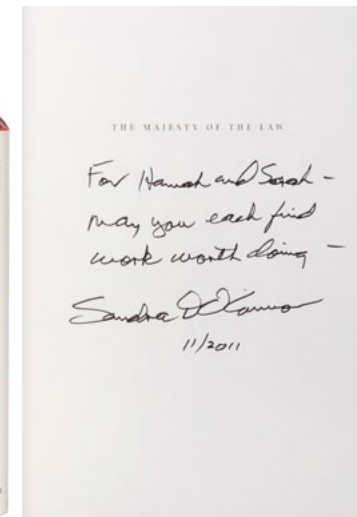 THE MAJESTY OF THE LAW
For Hannah and Sarah –
may you each find
work worth doing –
Sandra D O'Connor
11/2011